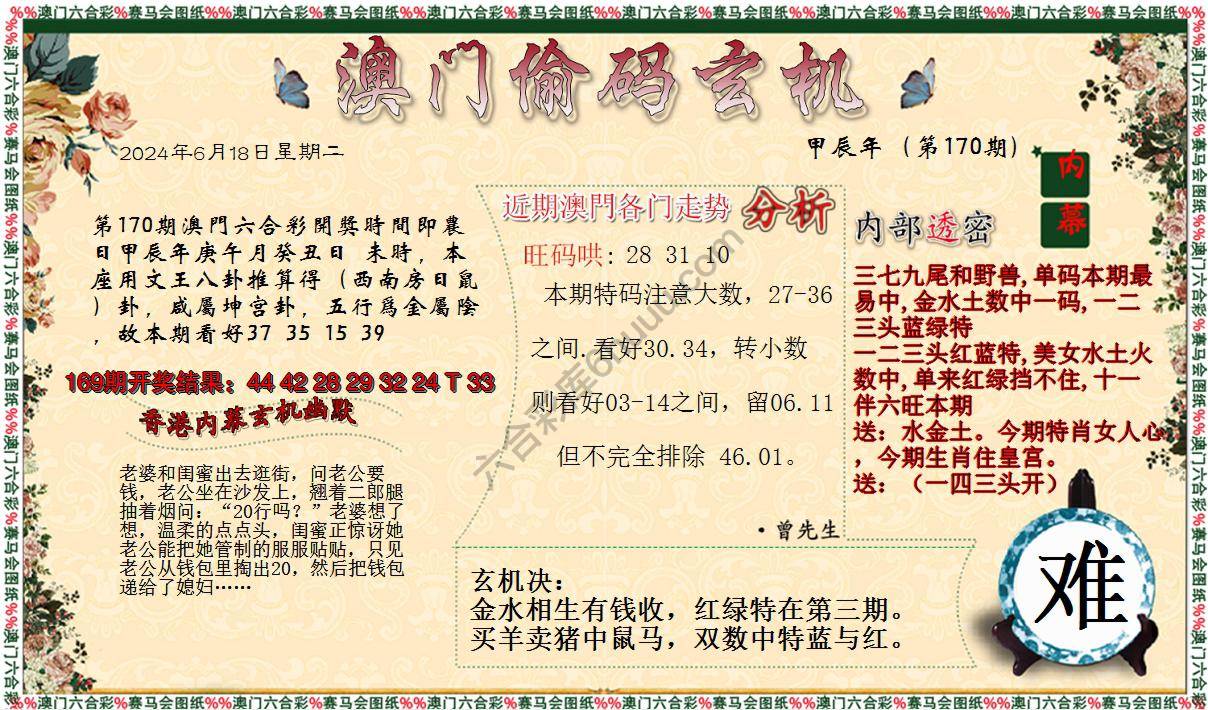 %%澳门六合彩%赛马会图纸%%澳门六合彩%赛马会图纸%%澳门六合彩%赛马会图纸%%澳门六合彩%赛马会图纸%%澳门六合彩%赛马会图纸%%澳门六合彩%赛马会图纸%%
澳门偷码玄机
2024年6月18日星期二
甲辰年（第170期）
内
幕
第170期澳門六合彩開獎時間即農
日甲辰年庚午月癸丑日 未時，本
座用文王八卦推算得（西南房日鼠
）卦，咸屬坤宫卦，五行爲金屬陰
，故本期看好37 35 15 39
169期开奖结果：44 42 28 29 32 24 T 33
香港内幕玄机幽默
老婆和闺蜜出去逛街，问老公要
钱，老公坐在沙发上，翘着二郎腿
抽着烟问：“20行吗？”老婆想了
想，温柔的点点头，闺蜜正惊讶她
老公能把她管制的服服贴贴，只见
老公从钱包里掏出20，然后把钱包
递给了媳妇……
近期澳門各门走势 分析
旺码哄: 28 31 10
本期特码注意大数，27-36
之间.看好30.34，转小数
则看好03-14之间，留06.11
但不完全排除 46.01。
·曾先生
内部透密
三七九尾和野兽,单码本期最
易中,金水土数中一码,一二
三头蓝绿特
一二三头红蓝特,美女水土火
数中,单来红绿挡不住,十一
伴六旺本期
送：水金土。今期特肖女人心
，今期生肖住皇宫。
送：（一四三头开）
玄机决：
金水相生有钱收，红绿特在第三期。
买羊卖猪中鼠马，双数中特蓝与红。
难
%%澳门六合彩%赛马会图纸%%澳门六合彩%赛马会图纸%%澳门六合彩%赛马会图纸%%澳门六合彩%赛马会图纸%%澳门六合彩%赛马会图纸%%澳门六合彩%赛马会图纸%%